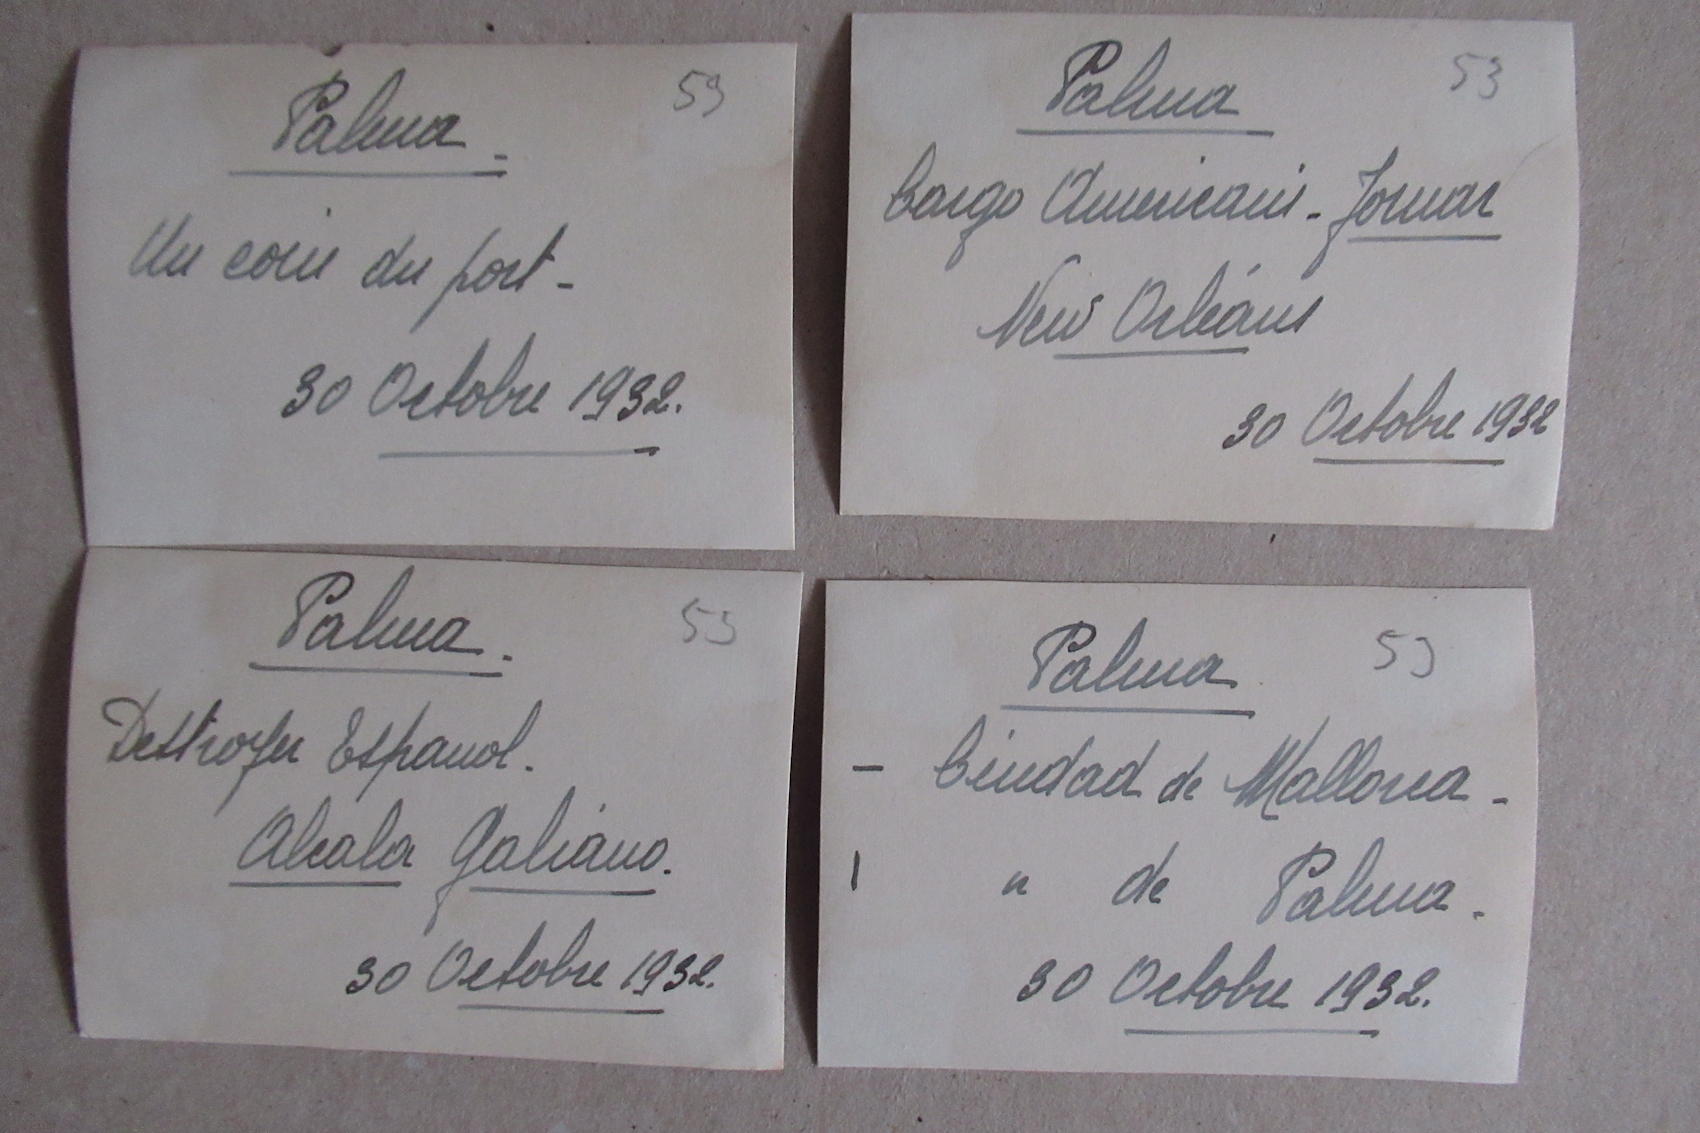 Palma. 59
Un coin du port -
30 Octobre 1932.
Palma 53
Cargo Américain - Jomar
New Orléans
30 Octobre 1932
Palma. 53
Destroyer Espanol.
Alcala Galiano.
30 Octobre 1932.
Palma 53
- Ciudad de Mallorca -
" de Palma.
30 Octobre 1932.